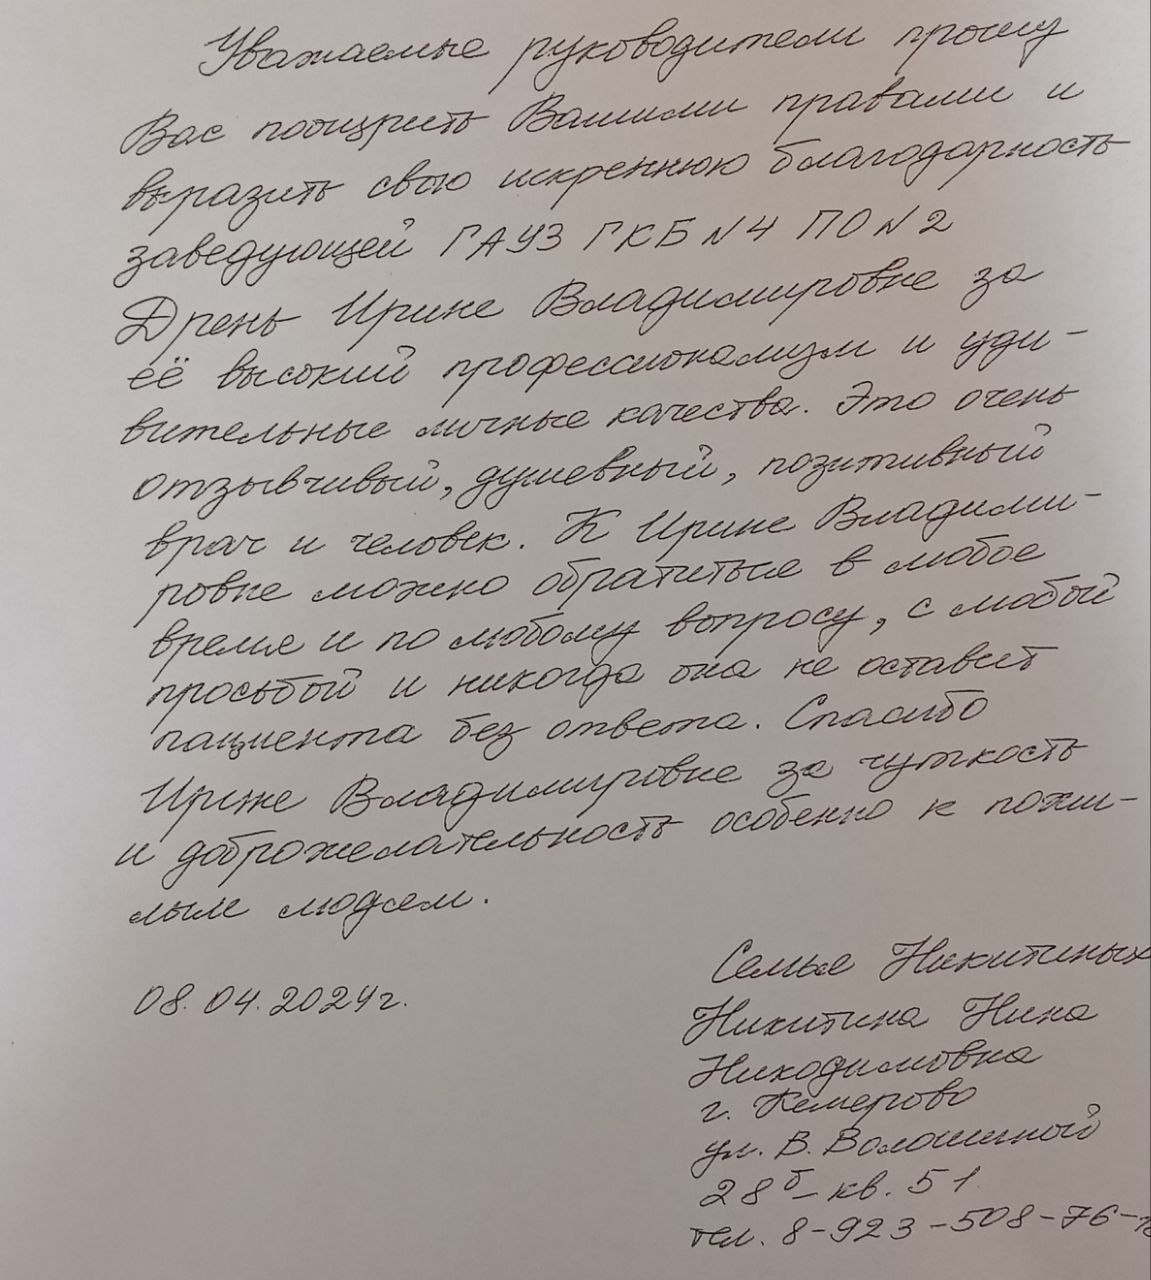 Уважаемые руководители прошу
Вас поощрить Вашими правами и
выразить свою искреннюю благодарность
заведующей ГАУЗ ГКБ №4 ПО №2
Дрень Ирине Владимировне за
её высокий профессионализм и уди-
вительные личные качества. Это очень
отзывчивый, душевный, позитивный
врач и человек. К Ирине Владими-
ровне можно обратиться в любое
время и по любому вопросу, с любой
просьбой и никогда она не оставит
пациента без ответа. Спасибо
Ирине Владимировне за чуткость
и доброжелательность особенно к пожи-
лым людям.
Семья Никитиных
08.04.2024г.
Никитина Нина
Никодимовна
г. Кемерово
ул. В. Волошиной
28б - кв. 51
тел. 8-923-508-76-